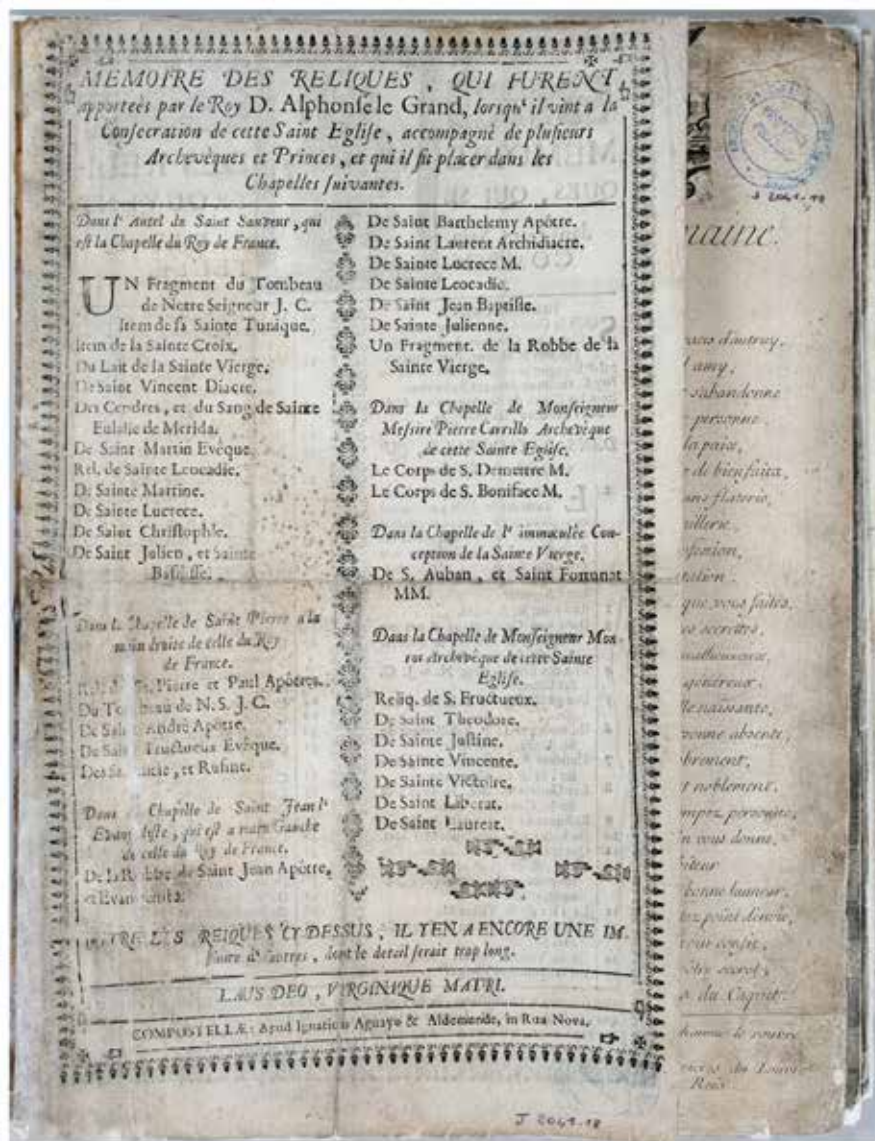 MEMOIRE DES RELIQUES, QUI FURENT
apporteés par le Roy D. Alphonse le Grand, lorsqu'il vint a la
Consecration de cette Saint Eglise, accompagné de plusieurs
Archevêques et Princes, et qui il fit placer dans les
Chapelles suivantes.
Dans l'Autel du Saint Sauveur, qui
est la Chapelle du Roy de France.
UN Fragment du Tombeau
de Notre Seigneur J. C.
Item de sa Sainte Tunique.
Item de la Sainte Croix.
Du Lait de la Sainte Vierge.
De Saint Vincent Diacre.
Des Cendres, et du Sang de Sainte
Eulalie de Merida.
De Saint Martin Evêque.
Rel. de Sainte Leocadie.
De Sainte Martine.
De Sainte Lucrece.
De Saint Christophle.
De Saint Julien, et Sainte
Basilisse.
Dans la Chapelle de Saint Pierre a la
main droite de celle du Roy
de France.
Pierre et Paul Apôtres.
Du Tombeau de N. S. J. C.
De Saint André Apôtre.
De Saint Fructueux Evêque.
et Rufine.
Dans Chapelle de Saint Jean l'
Evangeliste, qui est a main Gauche
de celle du Roy de France.
De la Robbe de Saint Jean Apôtre,
et Evangeliste
De Saint Barthelemy Apôtre.
De Saint Laurent Archidiacre.
De Sainte Lucrece M.
De Sainte Leocadie.
De Saint Jean Baptiste.
De Sainte Julienne.
Un Fragment. de la Robbe de la
Sainte Vierge.
Dans la Chapelle de Monseigneur
Messire Pierre Carrillo Archevêque
de cette Sainte Eglise.
Le Corps de S. Demettre M.
Le Corps de S. Boniface M.
Dans la Chapelle de l'immaculée Con-
ception de la Sainte Vierge.
De S. Auban, et Saint Fortunat
MM.
Dans la Chapelle de Monseigneur Mon-
roi Archevêque de cette Sainte
Eglise.
Reliq. de S. Fructueux.
De Saint Theodore.
De Sainte Justine.
De Sainte Vincente.
De Sainte Victoire.
De Saint Liberat.
De Saint Laurent.
OUTRE LES REIQUES CY DESSUS, IL Y EN A ENCORE UNE IM-
d'autres, dont le detail serait trop long.
LAUS DEO, VIRGINIQUE MATRI.
COMPOSTELLÆ: Apud Ignatium Aguayo & Aldemunde, in Rua Nova.
J 2041-18
J 2041-18
maine.
d'autruy,
amy,
s'abandonne
personne.
la paix,
de bienfaits,
flaterie,
que vous faites,
secrettes,
genereux.
naissante,
absente,
noblement,
vous donne,
du Caquet.